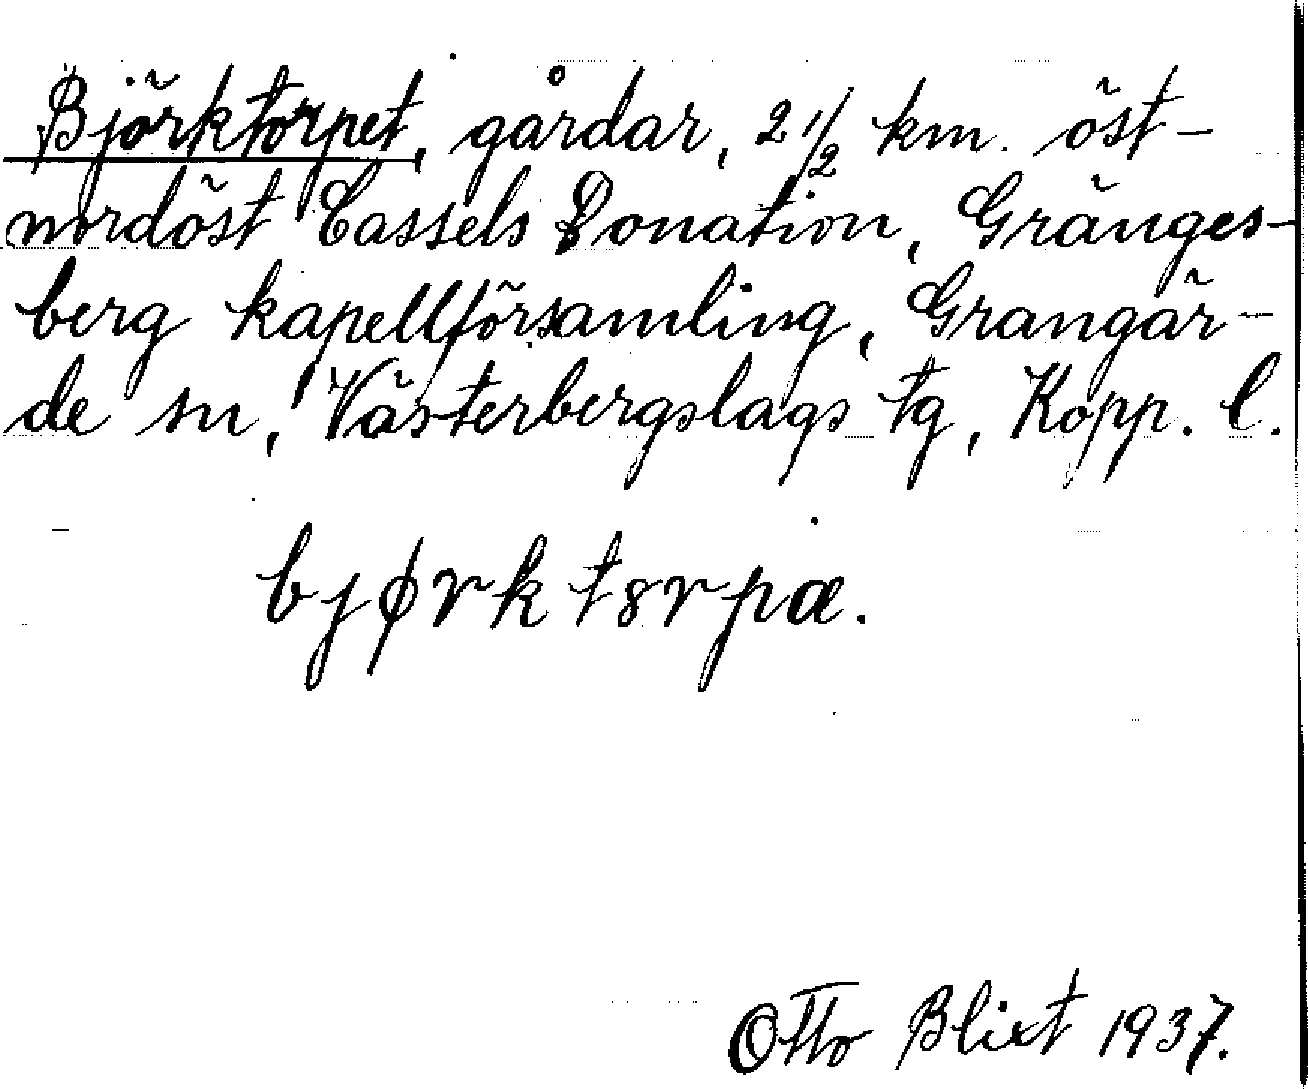 Björktorpet, gårdar, 2 1/2 km. öst-
nordöst Cassels Donation, Gränges-
berg kapellförsamling, Grangär-
de sn, Västerbergslags tg, Kopp. l.
bjørktɞrpæ.
Otto Blixt 1937.